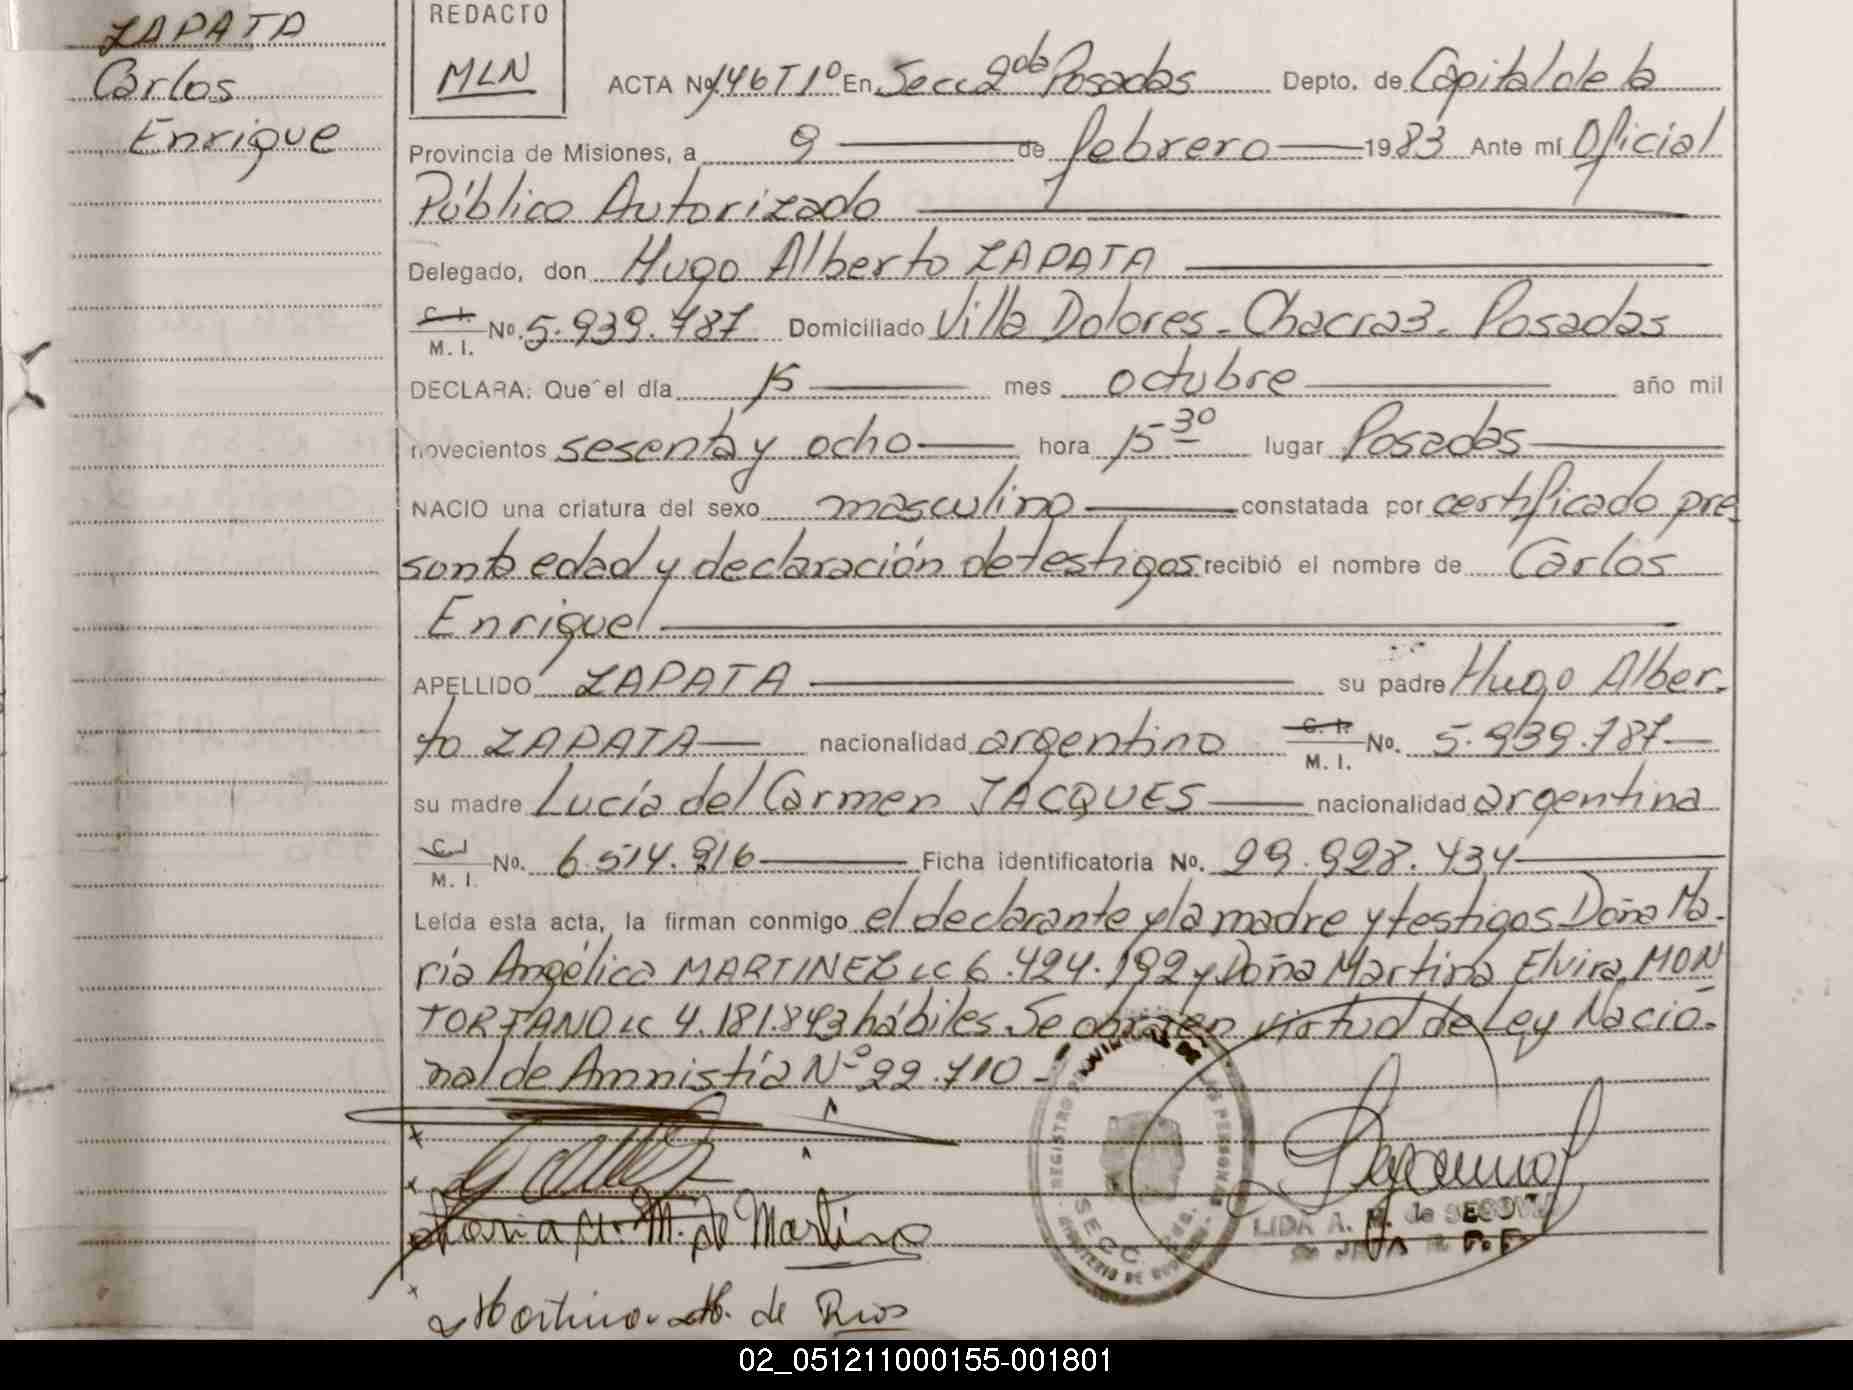 ZAPATA
Carlos
Enrique
REDACTO
MLN
ACTA Nº 146 T 1º En Secc 2da Posadas Depto. de Capital de la
Provincia de Misiones, a 9 de febrero 1983 Ante mí Oficial
Público Autorizado
Delegado, don Hugo Alberto ZAPATA
C. I.
M. I. Nº. 5.939.787 Domiciliado Villa Dolores - Chacra 3 - Posadas
DECLARA: Que el día 15 mes octubre año mil
novecientos sesenta y ocho hora 15 30 lugar Posadas
NACIO una criatura del sexo masculino constatada por certificado pre
sunta edad y declaración de testigos recibió el nombre de Carlos
Enrique
APELLIDO ZAPATA su padre Hugo Alber-
to ZAPATA nacionalidad argentino C. I. M. I. Nº. 5.939.787
su madre Lucía del Carmen JACQUES nacionalidad argentina
C. I.
M. I. Nº. 6.514.916 Ficha identificatoria Nº. 22.928.434
Leída esta acta, la firman conmigo el declarante y la madre y testigos Doña Ma-
ría Angélica MARTINEZ LC 6.424.192 y Doña Martina Elvira MON
TORFANO LC 4.181.843 hábiles. Se obra en virtud de Ley Nacio-
nal de Amnistía Nº 22.710 -
María A. M. de Martinez
Martina M. de Rios
REGISTRO DE LAS PERSONAS
SECC. 2da.
MINISTERIO DE GOBIERNO
LIDA A. M. de SEGOVIA
02_051211000155-001801